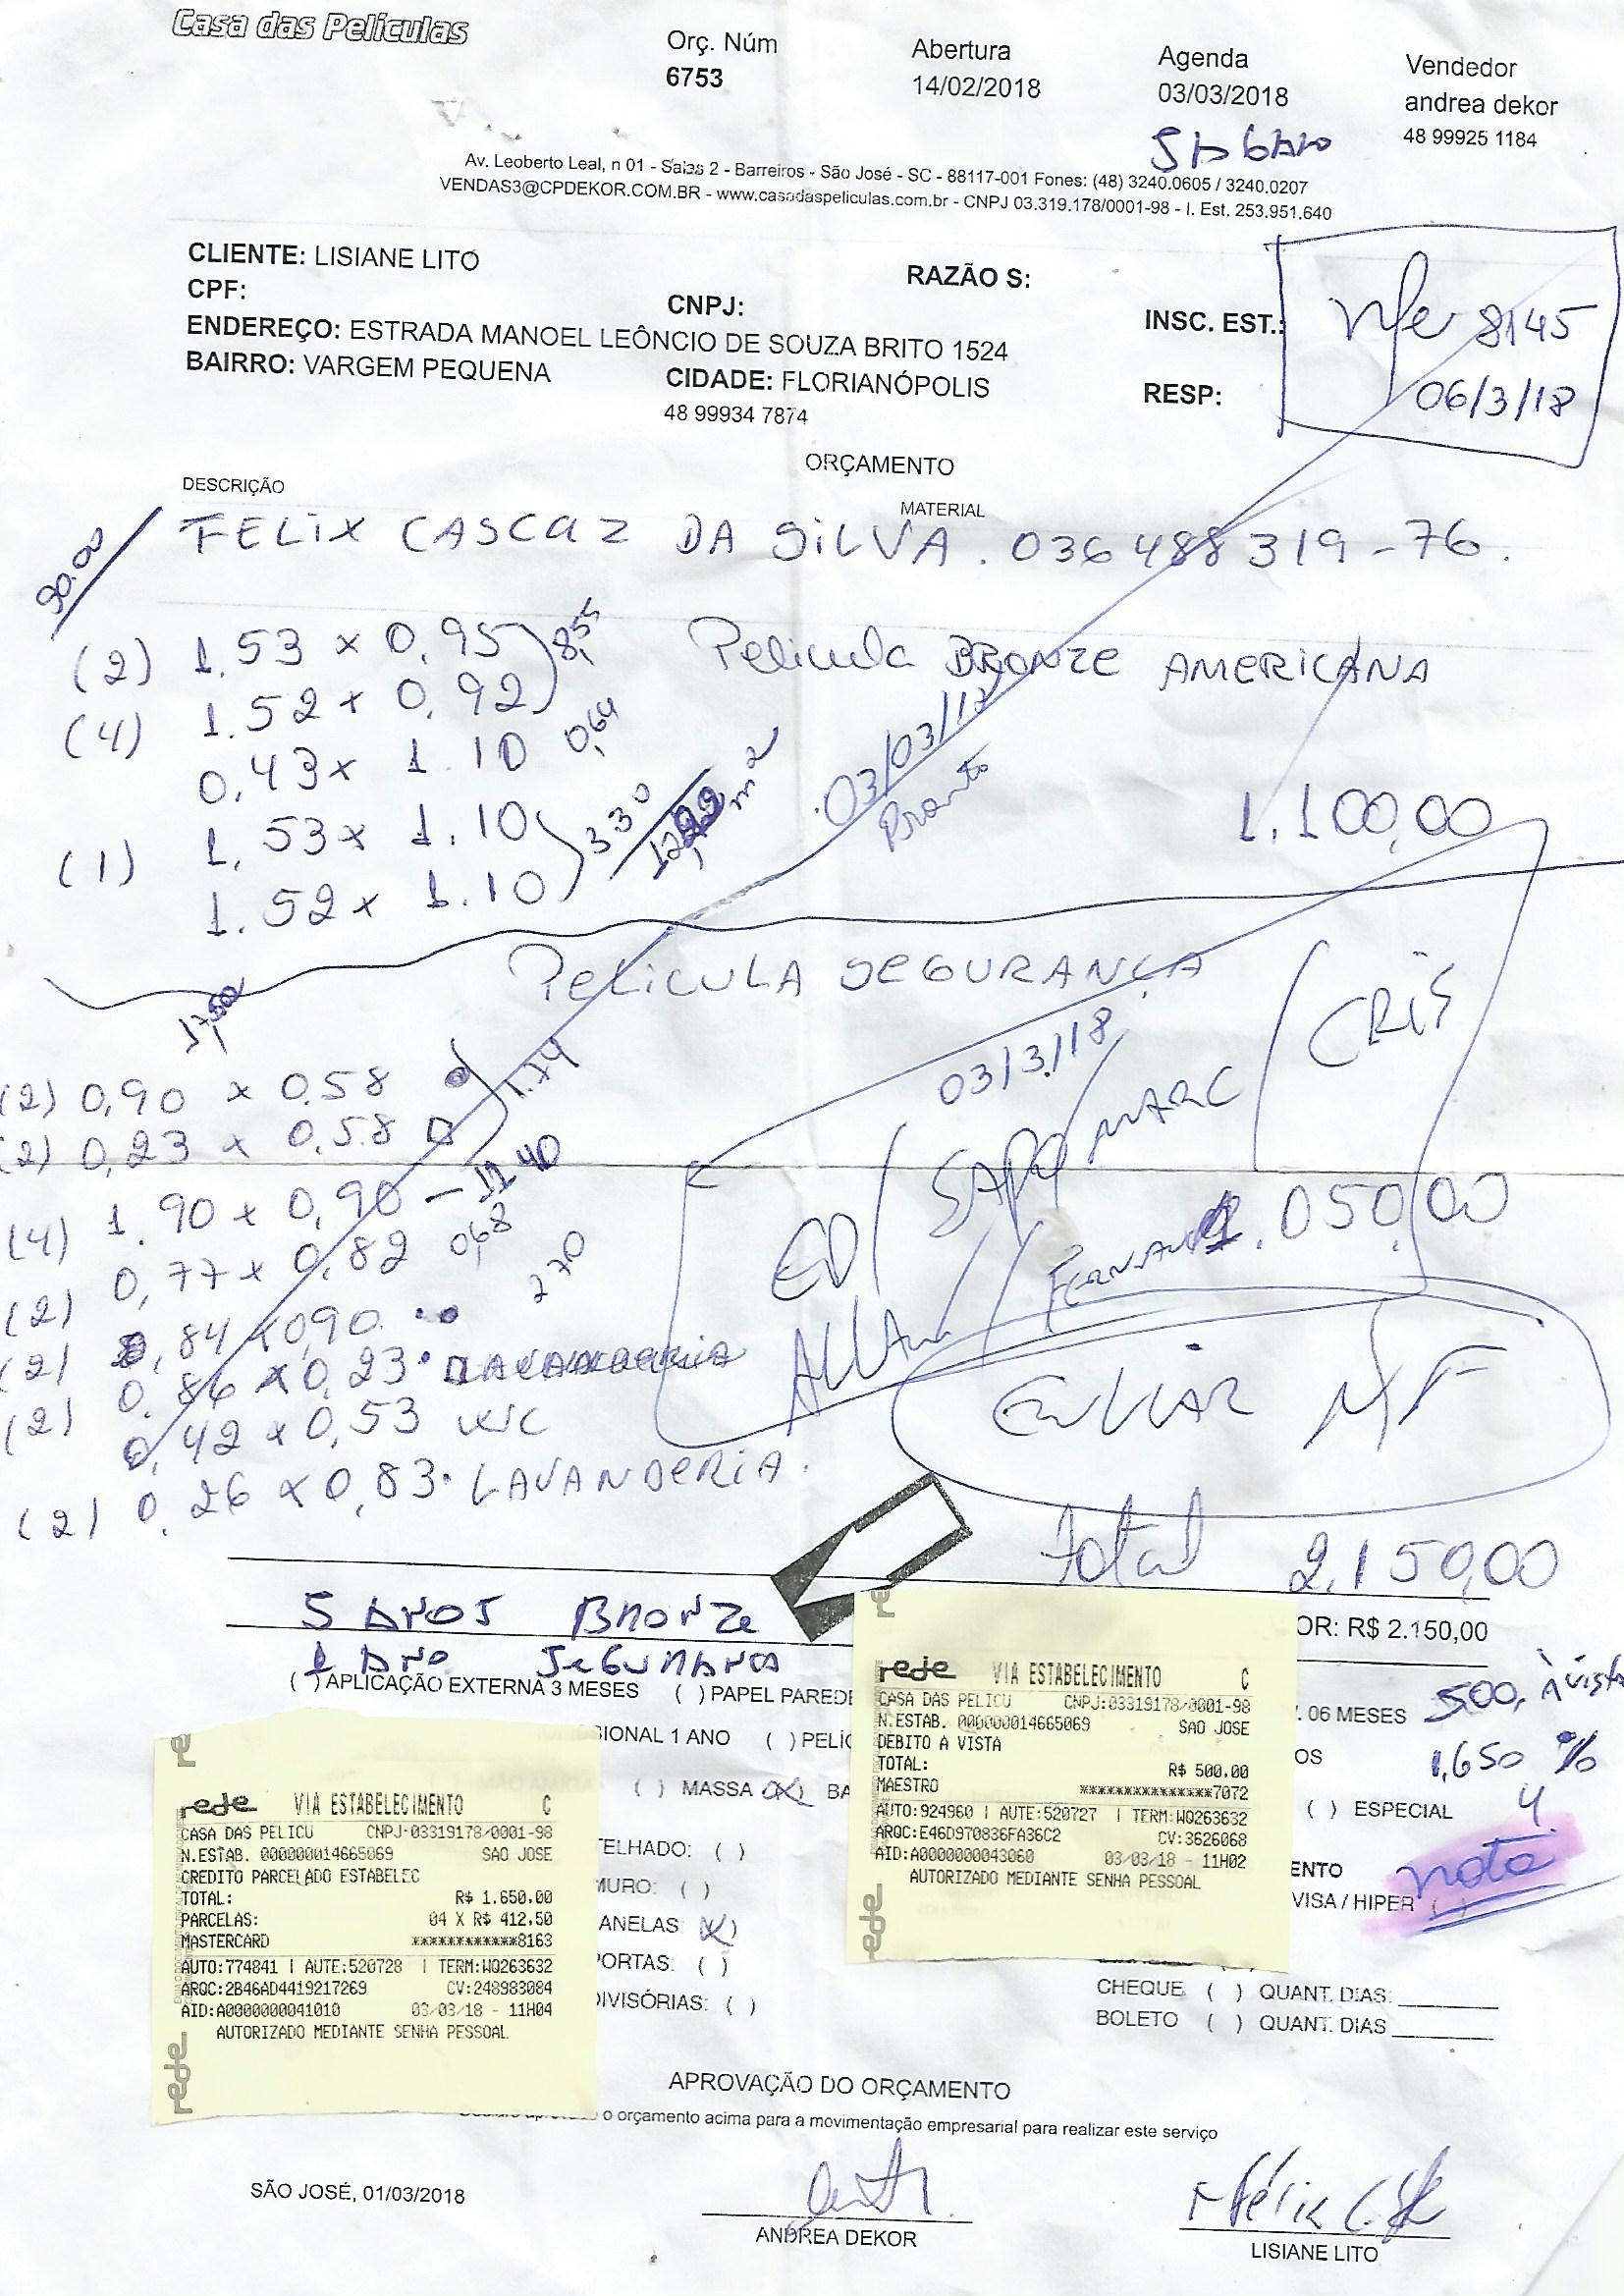 Casa das Películas
Orç. Núm
6753
Abertura
14/02/2018
Agenda
03/03/2018
SABADO
Vendedor
andrea dekor
48 99925 1184
Av. Leoberto Leal, n 01 - Salas 2 - Barreiros - São José - SC - 88117-001 Fones: (48) 3240.0605 / 3240.0207
VENDAS3@CPDEKOR.COM.BR - www.casadaspeliculas.com.br - CNPJ 03.319.178/0001-98 - I. Est. 253.951.640
CLIENTE: LISIANE LITO
RAZÃO S:
CPF:
CNPJ:
INSC. EST.:
ENDEREÇO: ESTRADA MANOEL LEÔNCIO DE SOUZA BRITO 1524
BAIRRO: VARGEM PEQUENA
CIDADE: FLORIANÓPOLIS
RESP:
48 99934 7874
Nfe 8145
06/3/18
ORÇAMENTO
DESCRIÇÃO
MATERIAL
90.00
FELIX CASCAZ DA SILVA. 036488319-76.
(2) 1.53 x 0,95 8,55
Pelicula BRONZE AMERICANA
(4) 1.52 x 0,92
0,43 x 1.10 0,64
03/03/18
Pronto
1,53 x 1.10 3.30
m²
1.100,00
(1)
1.52 x 1.10
PELICULA SEGURANÇA
CRIS
03/3/18
(2) 0,90 x 0.58 1.74
(2) 0,23 x 0,58
MARC
SAPO
(4) 1.90 x 0,90 - 11.40
1.050,00
(2) 0,77 x 0,82 0,68
2.70
ED
FERNANDO
(2) 0,84 x 090
ALLAN
(2) 0.86 x 0,23. LAVANDERIA
ENVIAR NF
0,42 x 0,53 WC
(2) 0,26 x 0,83. LAVANDERIA.
total 2.150,00
5 ANOS BRONZE
OR: R$ 2.150,00
1 ANO SEGURANÇA
( ) APLICAÇÃO EXTERNA 3 MESES ( ) PAPEL PAREDE
. 06 MESES
500, À vista
SIONAL 1 ANO ( ) PELÍC
OS
1,650 %
( ) MASSA (X) BA
( ) ESPECIAL
4
TELHADO: ( )
MURO: ( )
ANELAS (X)
PORTAS: ( )
DIVISÓRIAS: ( )
ENTO
nota
VISA / HIPER ( )
CHEQUE ( ) QUANT. DIAS:
BOLETO ( ) QUANT. DIAS
rede VIA ESTABELECIMENTO C
CASA DAS PELICU CNPJ:03319178/0001-98
N.ESTAB. 000000014665069 SAO JOSE
DEBITO A VISTA
TOTAL: R$ 500.00
MAESTRO **************7072
AUTO:924960 | AUTE:520727 | TERM:WQ263632
ARQC:E46D970836FA36C2 CV:3626068
AID:A0000000043060 03/03/18 - 11H02
AUTORIZADO MEDIANTE SENHA PESSOAL
rede
rede VIA ESTABELECIMENTO C
CASA DAS PELICU CNPJ-03319178/0001-98
N.ESTAB. 000000014665069 SAO JOSE
CREDITO PARCELADO ESTABELEC
TOTAL: R$ 1.650.00
PARCELAS: 04 X R$ 412.50
MASTERCARD ************8163
AUTO:774841 | AUTE:520728 | TERM:WQ263632
ARQC:2B46AD4419217269 CV:248983084
AID:A0000000041010 03/03/18 - 11H04
AUTORIZADO MEDIANTE SENHA PESSOAL
rede
APROVAÇÃO DO ORÇAMENTO
o orçamento acima para a movimentação empresarial para realizar este serviço
SÃO JOSÉ, 01/03/2018
ANDREA DEKOR
LISIANE LITO